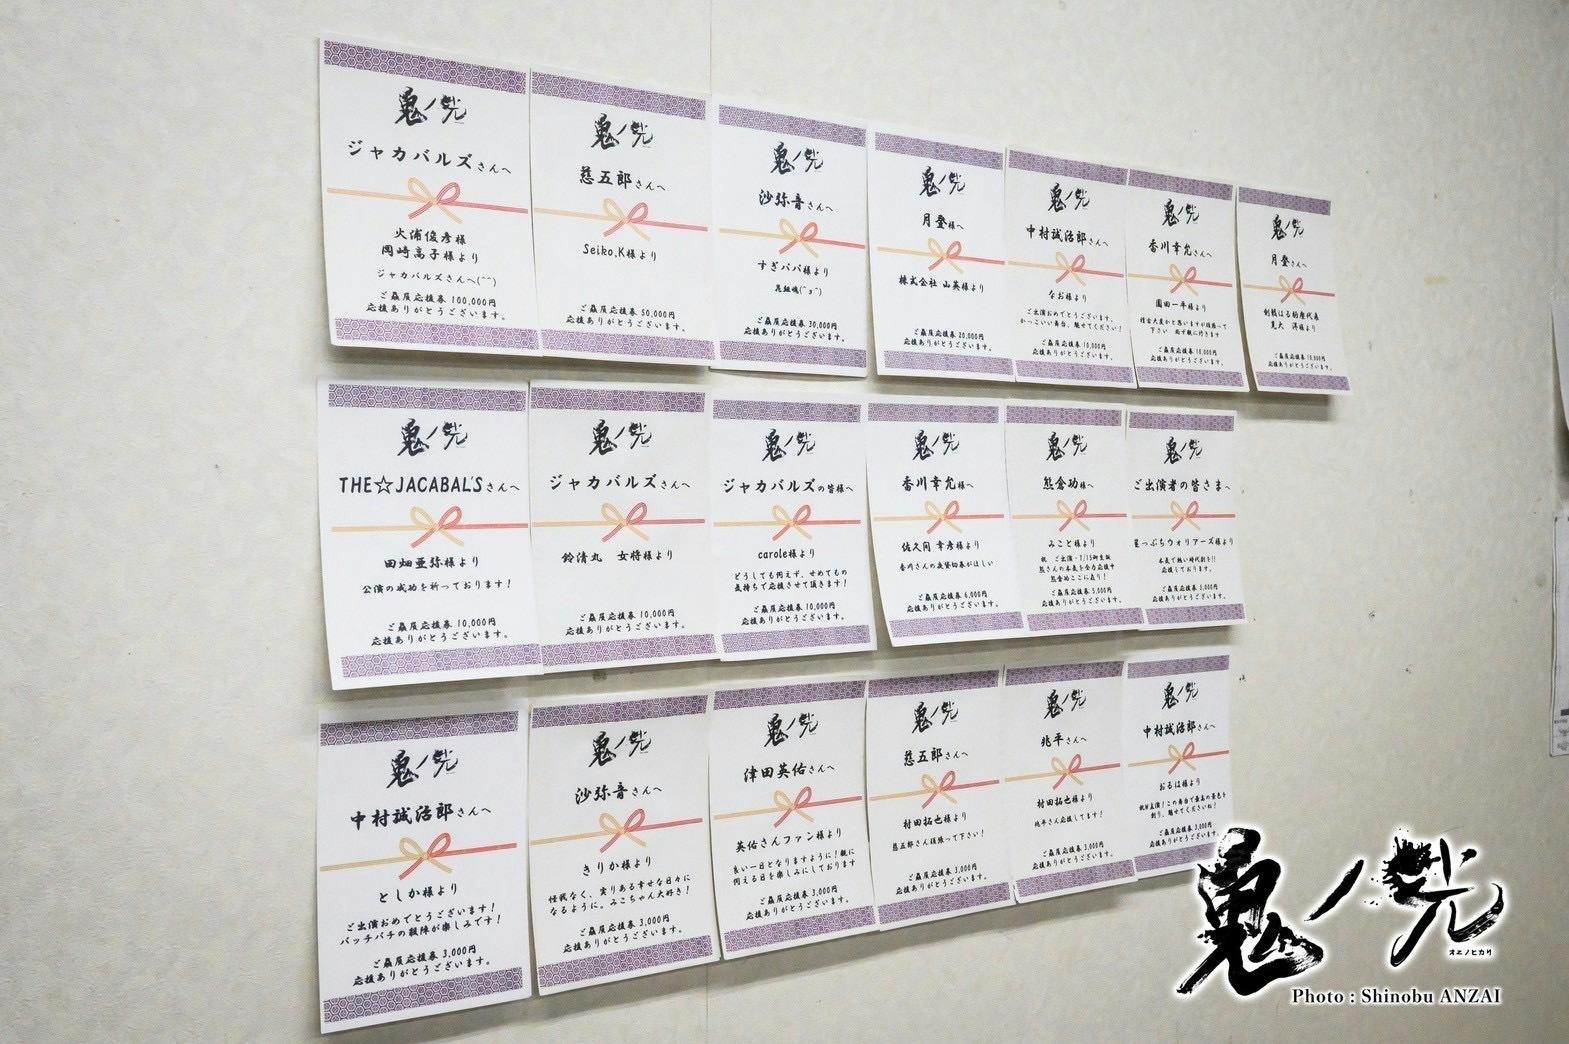 鬼ノ光
ジャカバルズさんへ
火浦俊彦様
岡崎高子様より
ジャカバルズさんへ(^^)
ご贔屓応援券 100,000円
応援ありがとうございます。
鬼ノ光
慈五郎さんへ
Seiko.K様より
ご贔屓応援券 50,000円
応援ありがとうございます。
鬼ノ光
沙弥音さんへ
すぎパパ様より
ご贔屓応援券 30,000円
応援ありがとうございます。
鬼ノ光
月登様へ
株式会社 山英様より
ご贔屓応援券 20,000円
応援ありがとうございます。
鬼ノ光
中村誠治郎さんへ
なお様より
ご出演おめでとうございます。
かっこいい舞台、魅せてください！
ご贔屓応援券 10,000円
応援ありがとうございます。
鬼ノ光
香川幸允さんへ
園田一平様より
稽古大変かと思いますが頑張って
下さい 必ず観に行きます
ご贔屓応援券 10,000円
応援ありがとうございます。
鬼ノ光
月登さんへ
剣戟はる駒座代表
ご贔屓応援券 10,000円
応援ありがとうございます。
鬼ノ光
THE☆JACABAL'Sさんへ
田畑亜弥様より
公演の成功を祈っております！
ご贔屓応援券 10,000円
応援ありがとうございます。
鬼ノ光
ジャカバルズさんへ
鈴清丸 女将様より
ご贔屓応援券 10,000円
応援ありがとうございます。
鬼ノ光
ジャカバルズの皆様へ
carole様より
どうしても伺えず、せめてもの
気持ちで応援させて頂きます！
ご贔屓応援券 10,000円
応援ありがとうございます。
鬼ノ光
香川幸允様へ
佐久間 幸彦様より
香川さんの夜貸切券がほしい
ご贔屓応援券 6,000円
応援ありがとうございます。
鬼ノ光
熊倉功様へ
みこと様より
熊さんの本気を全力応援中
熊倉功ここに在り！
ご贔屓応援券 5,000円
応援ありがとうございます。
鬼ノ光
ご出演者の皆さまへ
崖っぷちウォリアーズ様より
本気で熱い時代劇を!!
応援しております。
ご贔屓応援券 3,000円
応援ありがとうございます。
鬼ノ光
中村誠治郎さんへ
としか様より
ご出演おめでとうございます！
バッチバチの殺陣が楽しみです！
ご贔屓応援券 3,000円
応援ありがとうございます。
鬼ノ光
沙弥音さんへ
きりか様より
怪我なく、実りある幸せな日々に
なるように。みこちゃん大好き！
ご贔屓応援券 3,000円
応援ありがとうございます。
鬼ノ光
津田英佑さんへ
英佑さんファン様より
良い一日となりますように！観に
伺える日を楽しみにしております
ご贔屓応援券 3,000円
応援ありがとうございます。
鬼ノ光
慈五郎さんへ
村田拓也様より
慈五郎さん頑張って下さい！
ご贔屓応援券 3,000円
応援ありがとうございます。
鬼ノ光
兆平さんへ
村田拓也様より
兆平さん応援してます！
ご贔屓応援券 3,000円
応援ありがとうございます。
鬼ノ光
中村誠治郎さんへ
おるは様より
祝W主演！この舞台で最高の景色を
創り、魅せてくださいね！
ご贔屓応援券 3,000円
応援ありがとうございます。
鬼ノ光
オニノヒカリ
Photo : Shinobu ANZAI